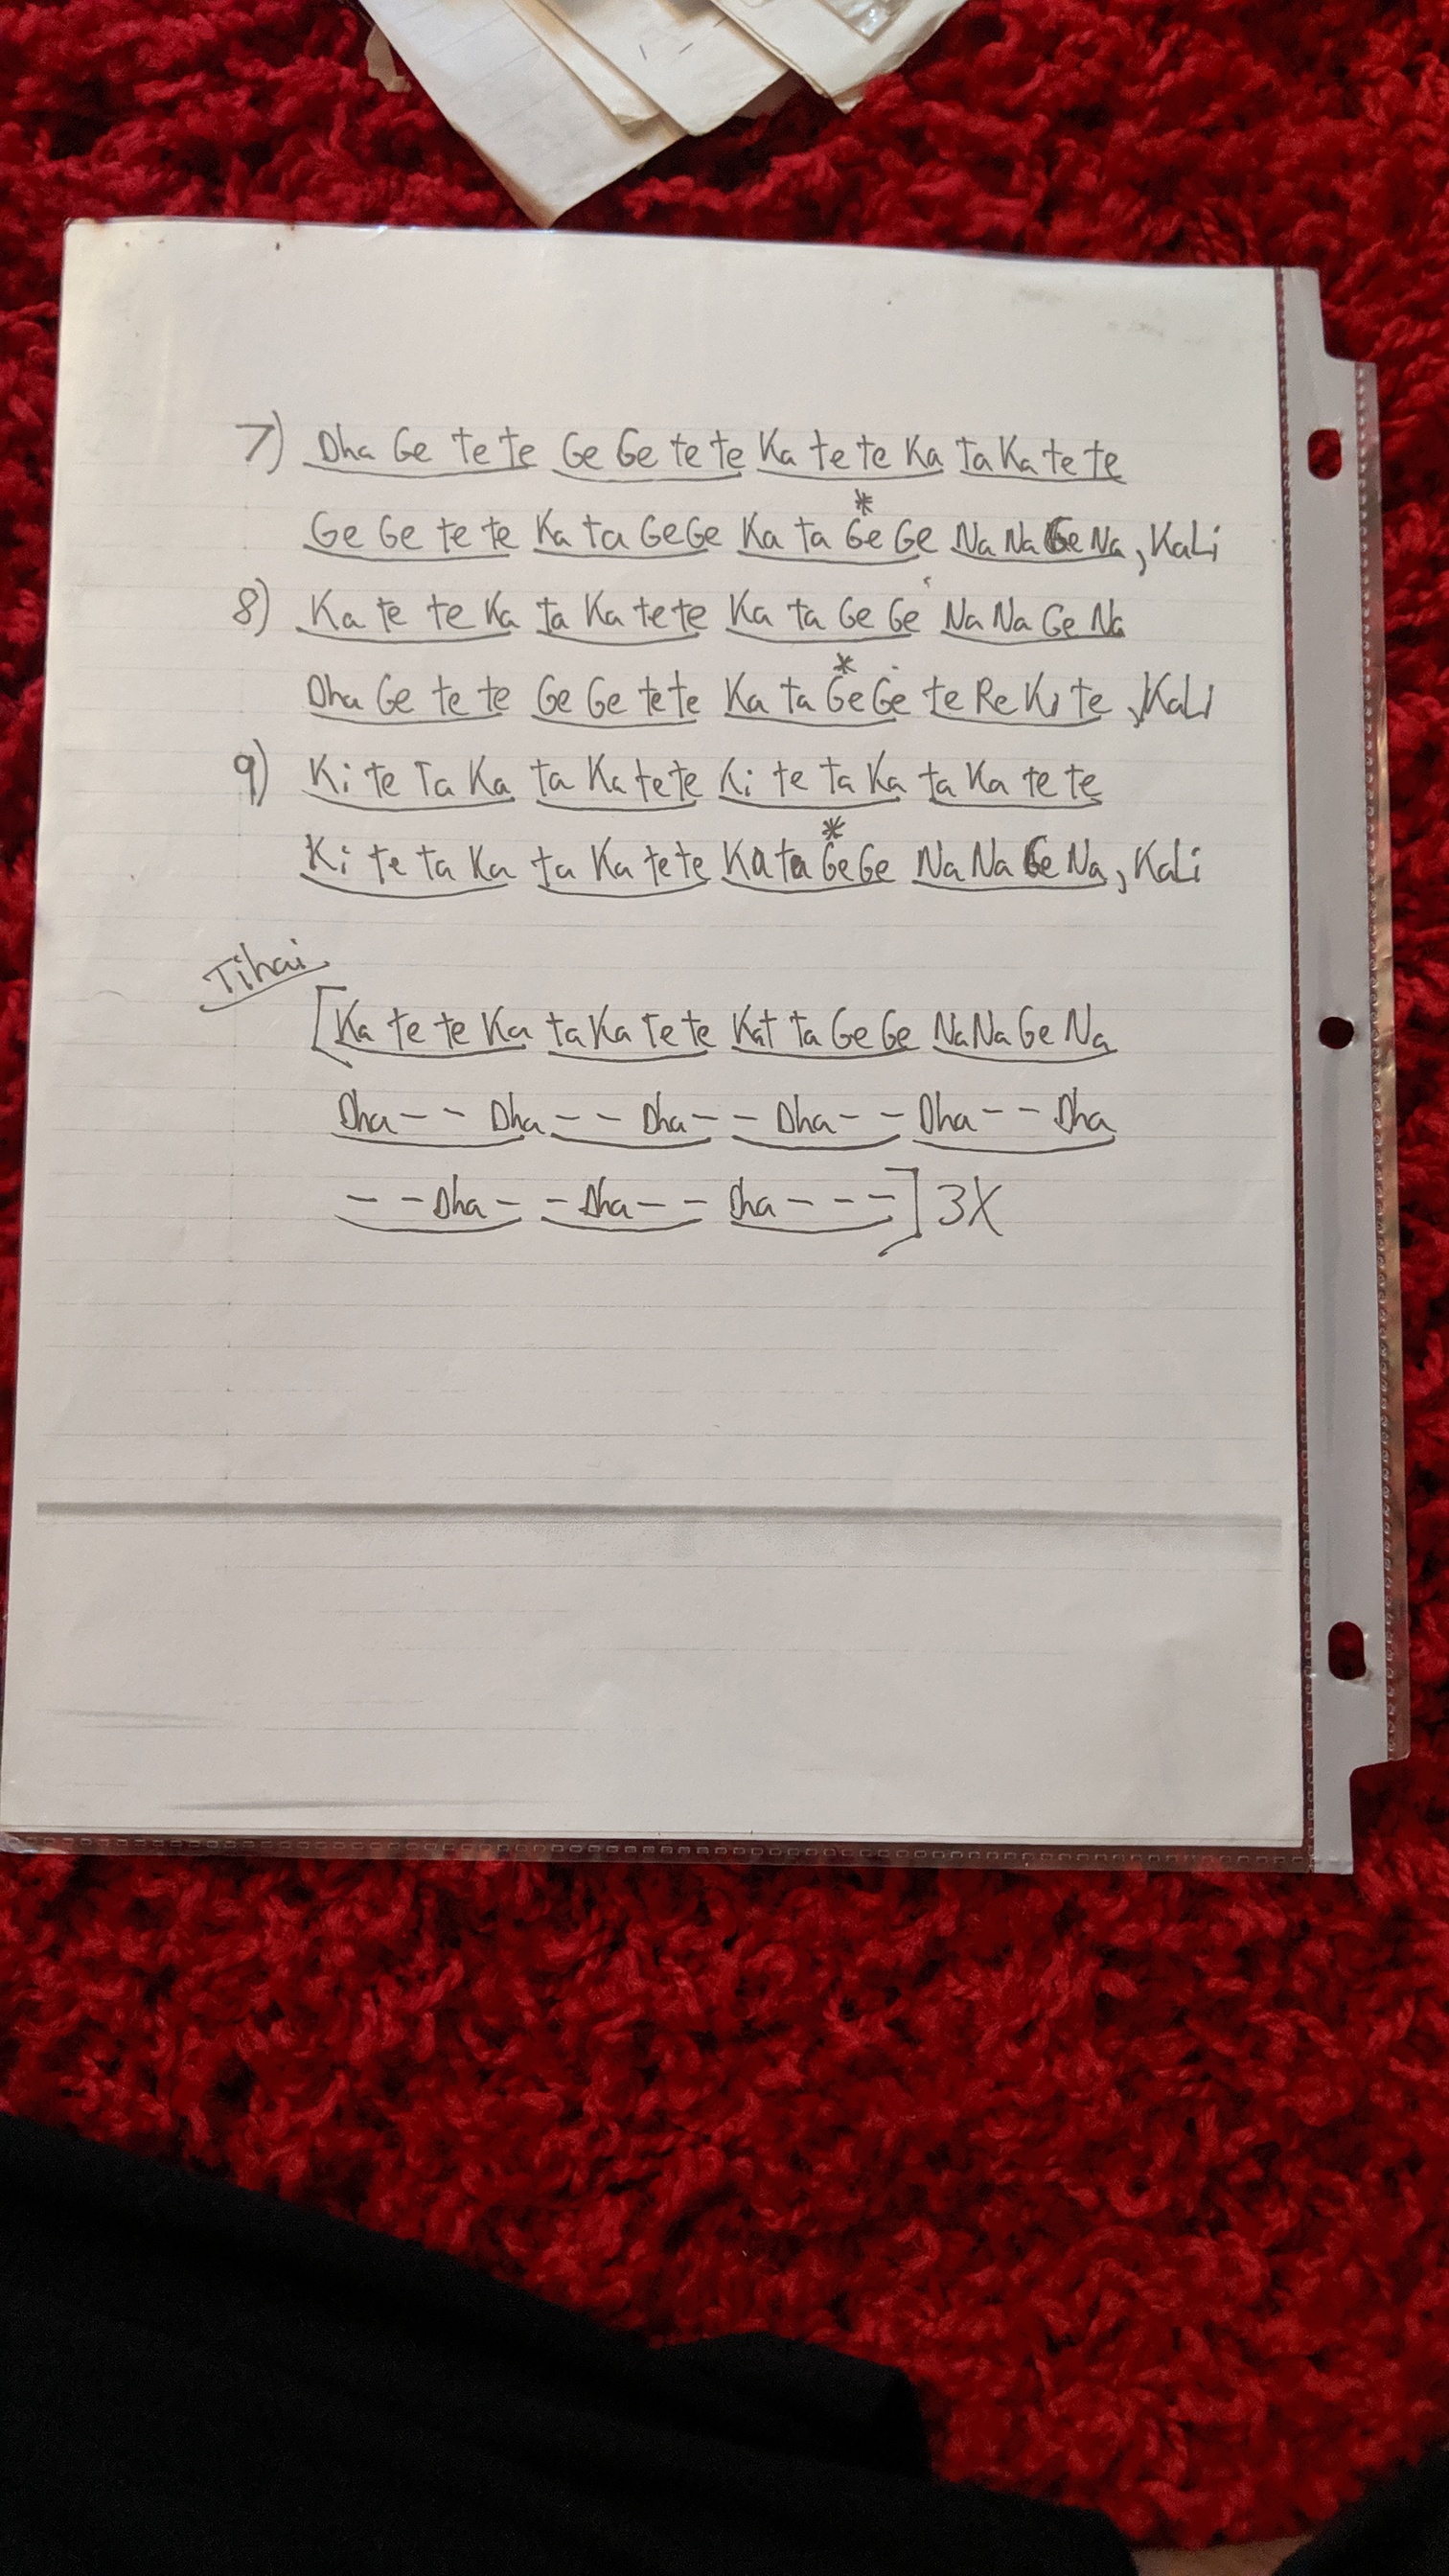 7) Dha Ge te te Ge Ge te te Ka te te Ka Ta Ka te te
*
Ge Ge te te Ka ta Ge Ge Ka ta Ge Ge Na Na Ge Na, KaLi
8) Ka te te Ka ta Ka te te Ka ta Ge Ge Na Na Ge Na
*
Dha Ge te te Ge Ge te te Ka ta Ge Ge te Re Ki te, KaLi
9) Ki te Ta Ka ta Ka te te Ki te ta Ka ta Ka te te
*
Ki te ta Ka ta Ka te te Ka ta Ge Ge Na Na Ge Na, KaLi
Tihai
[Ka te te Ka ta Ka te te Kat ta Ge Ge Na Na Ge Na
Dha - - Dha - - Dha - - Dha - - Dha - - Dha
- - Dha - - Dha - - Dha - - -] 3X